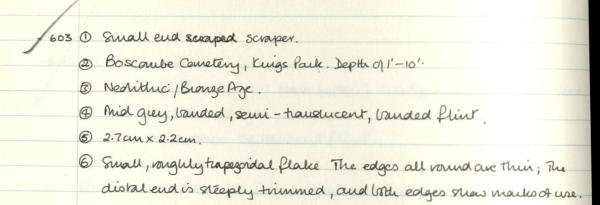 603 ① Small end scraped scraper.
② Boscombe Cemetery, Kings Park. Depth of 1'-10".
③ Neolithic/Bronze Age.
④ Mid grey, banded, semi-translucent, banded flint.
⑤ 2.7cm x 2.2cm.
⑥ Small, roughly trapezoidal flake The edges all round are thin; The
distal end is steeply trimmed, and both edges show marks of use.